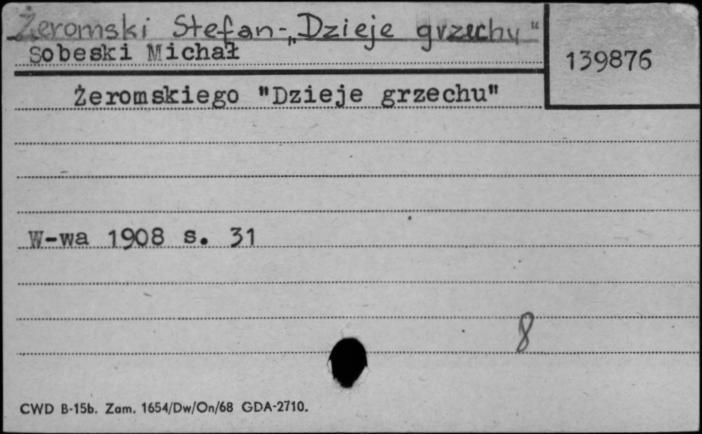 Żeromski Stefan - „Dzieje grzechu"
Sobeski Michał
139876
Żeromskiego "Dzieje grzechu"
W-wa 1908 s. 31
8
CWD B-15b. Zam. 1654/Dw/On/68 GDA-2710.